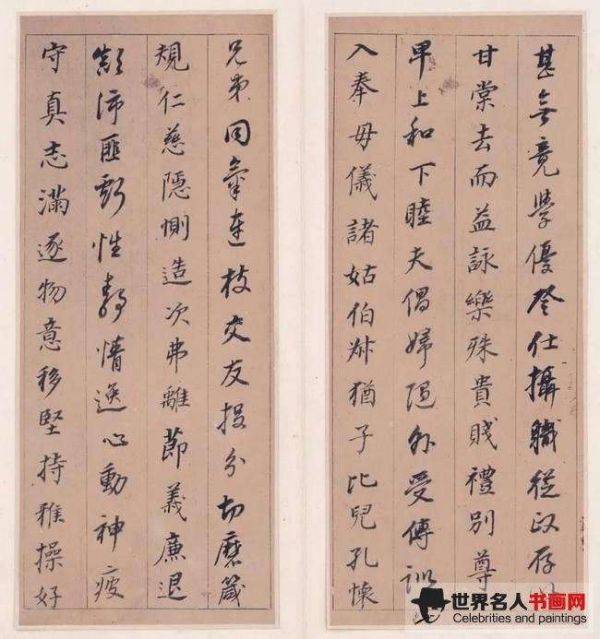 甚無竟學優登仕攝職從政存以
甘棠去而益詠樂殊貴賤禮別尊
卑上和下睦夫倡婦隨外受傅訓
入奉母儀諸姑伯叔猶子比兒孔懷
兄弟同氣連枝交友投分切磨箴
規仁慈隱惻造次弗離節義廉退
顛沛匪虧性靜情逸心動神疲
守真志滿逐物意移堅持雅操好
世界名人书画网
Celebrities and paintings